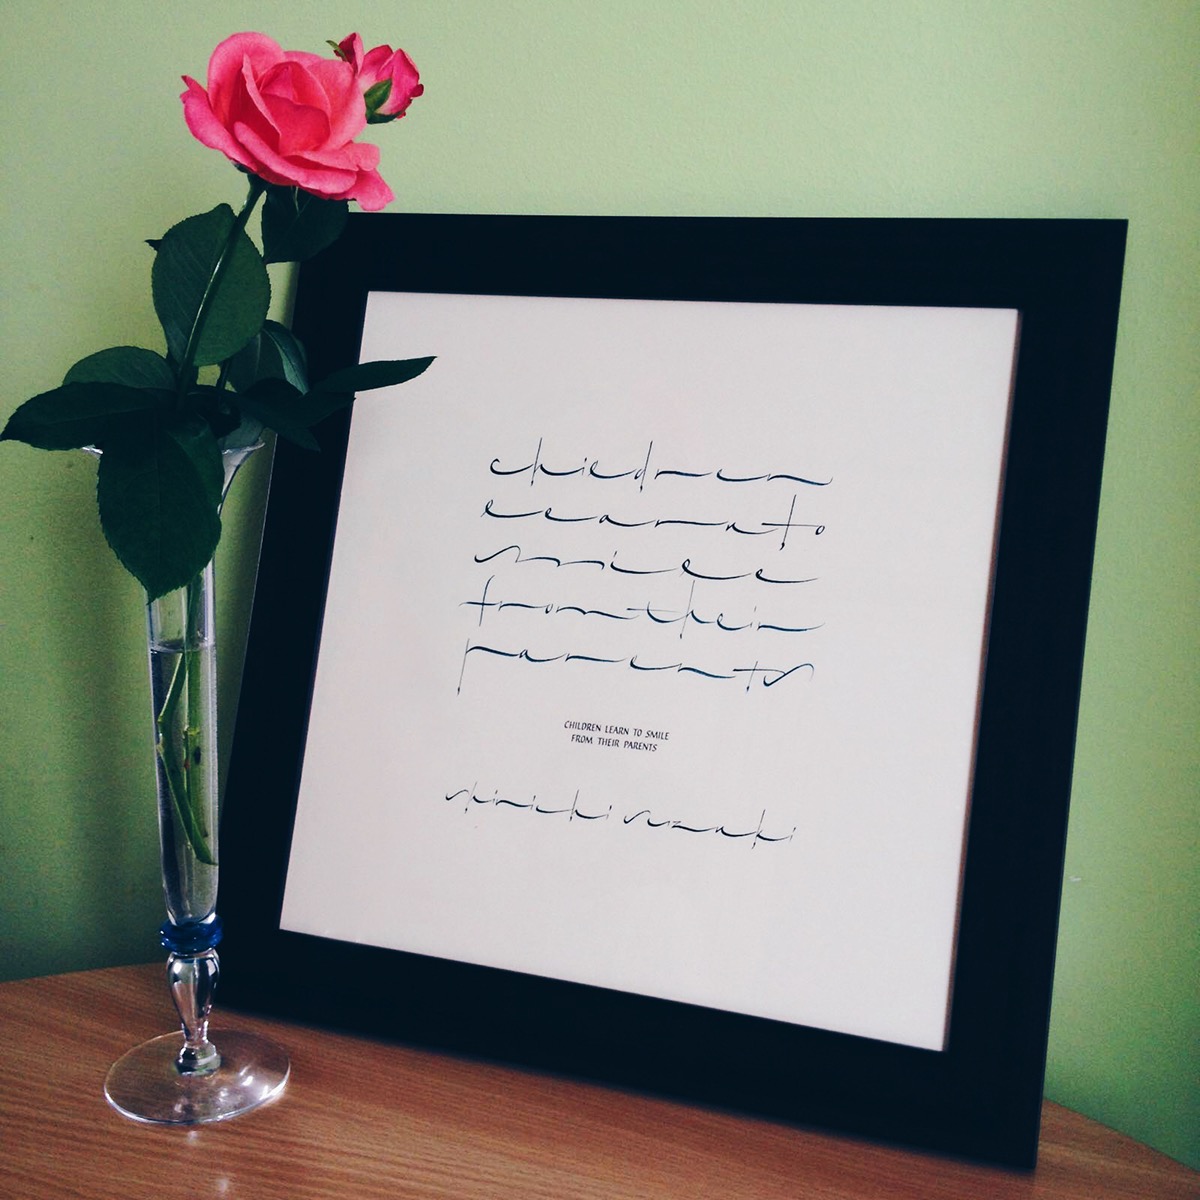 children
learn to
smile
from their
parents
CHILDREN LEARN TO SMILE
FROM THEIR PARENTS
shinichi suzuki